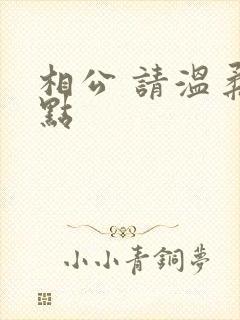 相公 請溫柔
點
小小青銅夢